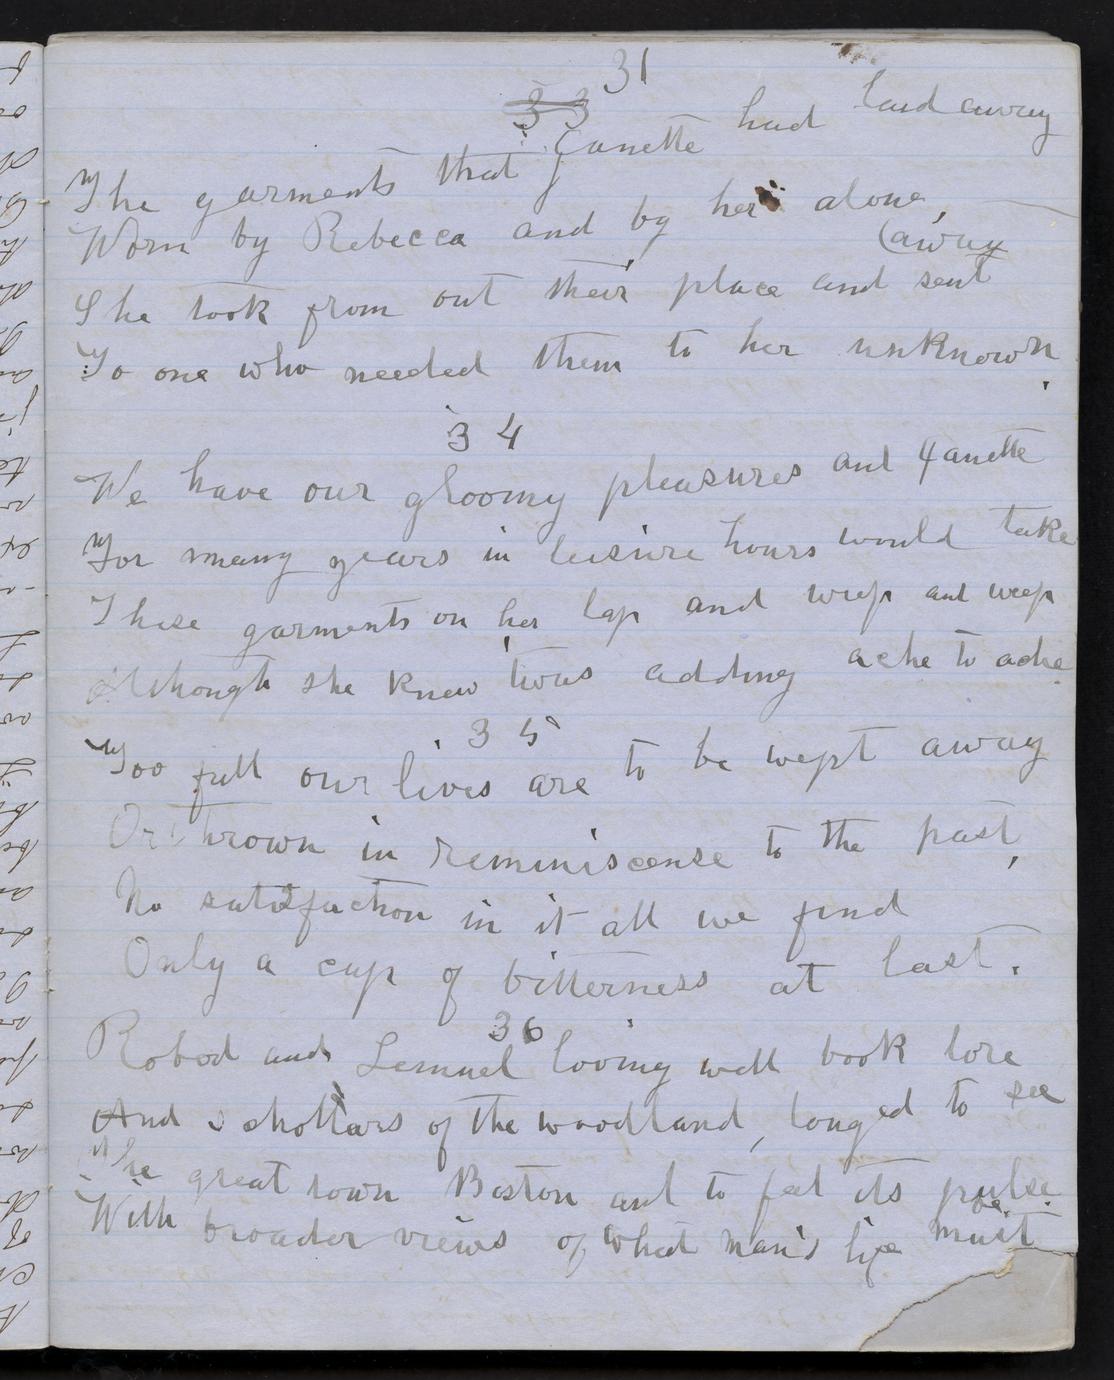 31
33
The garments that Janette had laid away
Worn by Rebecca and by her alone,
She took from out their place and sent (away
To one who needed them to her unknown.
34
We have our gloomy pleasures and Janette
For many years in leisure hours would take
These garments on her lap and weep and weep
Although she knew 'twas adding ache to ache.
35
Too full our lives are to be wept away
Or thrown in reminiscense to the past,
No satisfaction in it all we find
Only a cup of bitterness at last.
36
Robod and Lemuel loving well book lore
And schollars of the woodland, longed to see
The great town Boston and to feel its pulse.
With broader views of what man's life must be.